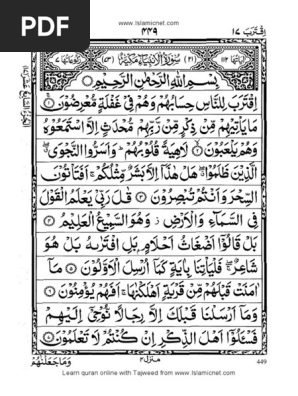 PDF
www.Islamicnet.com
اِقْتَرَبَ ١٧
٤٤٩
اٰيَاتُهَا ١١٢ (٢١) سُوْرَةُ الْاَنْۢبِيَآءِ مَكِّيَّةٌ (٧٣) رُكُوْعَاتُهَا ٧
بِسْمِ اللّٰهِ الرَّحْمٰنِ الرَّحِيْمِ
اِقْتَرَبَ لِلنَّاسِ حِسَابُهُمْ وَهُمْ فِيْ غَفْلَةٍ مُّعْرِضُوْنَ ١
مَا يَاْتِيْهِمْ مِّنْ ذِكْرٍ مِّنْ رَّبِّهِمْ مُّحْدَثٍ اِلَّا اسْتَمَعُوْهُ
وَهُمْ يَلْعَبُوْنَ ٢ لَاهِيَةً قُلُوْبُهُمْ وَاَسَرُّوا النَّجْوَى
الَّذِيْنَ ظَلَمُوْا هَلْ هٰذَآ اِلَّا بَشَرٌ مِّثْلُكُمْ اَفَتَاْتُوْنَ
السِّحْرَ وَاَنْتُمْ تُبْصِرُوْنَ ٣ قٰلَ رَبِّيْ يَعْلَمُ الْقَوْلَ
فِي السَّمَآءِ وَالْاَرْضِ وَهُوَ السَّمِيْعُ الْعَلِيْمُ ٤
بَلْ قَالُوْٓا اَضْغَاثُ اَحْلَامٍۭ بَلِ افْتَرٰىهُ بَلْ هُوَ
شَاعِرٌ فَلْيَاْتِنَا بِاٰيَةٍ كَمَآ اُرْسِلَ الْاَوَّلُوْنَ ٥ مَآ
اٰمَنَتْ قَبْلَهُمْ مِّنْ قَرْيَةٍ اَهْلَكْنٰهَا اَفَهُمْ يُؤْمِنُوْنَ ٦
وَمَآ اَرْسَلْنَا قَبْلَكَ اِلَّا رِجَالًا نُّوْحِيْٓ اِلَيْهِمْ
فَسْئَلُوْٓا اَهْلَ الذِّكْرِ اِنْ كُنْتُمْ لَا تَعْلَمُوْنَ ٧
وَمَا جَعَلْنٰهُمْ
منزل ٤
449
Learn quran online with Tajweed from www.Islamicnet.com